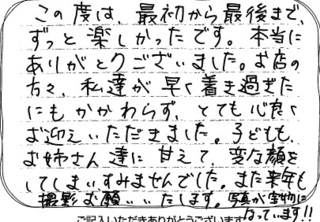 この度は、最初から最後まで、
ずっと楽しかったです。本当に
ありがとうございました。お店の
方々、私達が早く着き過ぎた
にもかかわらず、とても心良く
お迎えいただきました。子どもも、
お姉さん達に甘えて、変な顔を
してしまいすみませんでした。また来年も
撮影お願いいたします。写真が宝物に
なっています!!
ご記入いただきありがとうございます